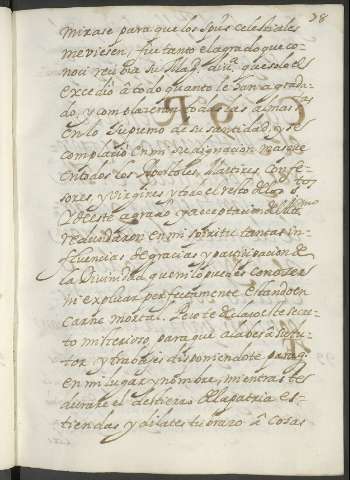 38
mirase para que los Spus celestiales
me viesen, fue tanto el agrado que co-
noci recibia su Mag. divª. que solo el
excedio à todo quanto le han agrada-
do, y complacido todas las almas
en lo supremo de su santidad, y se
complacio en mi su dignacion mas que
en todos los Apostoles, Martires, Confe-
sores, y Virgines, y todo el resto de los Stos
y de este agrado, y aceptacion del Altmo
redundaron en mi spiritu tantas in-
fluencias de gracias, y participacion de
la Divinidad, que ni lo puedes conocer
ni explicar perfectamente estando en
carne mortal. Pero te declaro este secre-
to misterioso, para que alabes à su Au-
tor, y trabajes disponiendote para q
en mi lugar, y nombre, mientras te
durare el destierro de la patria es-
tiendas, y dilates tu brazo à cosas